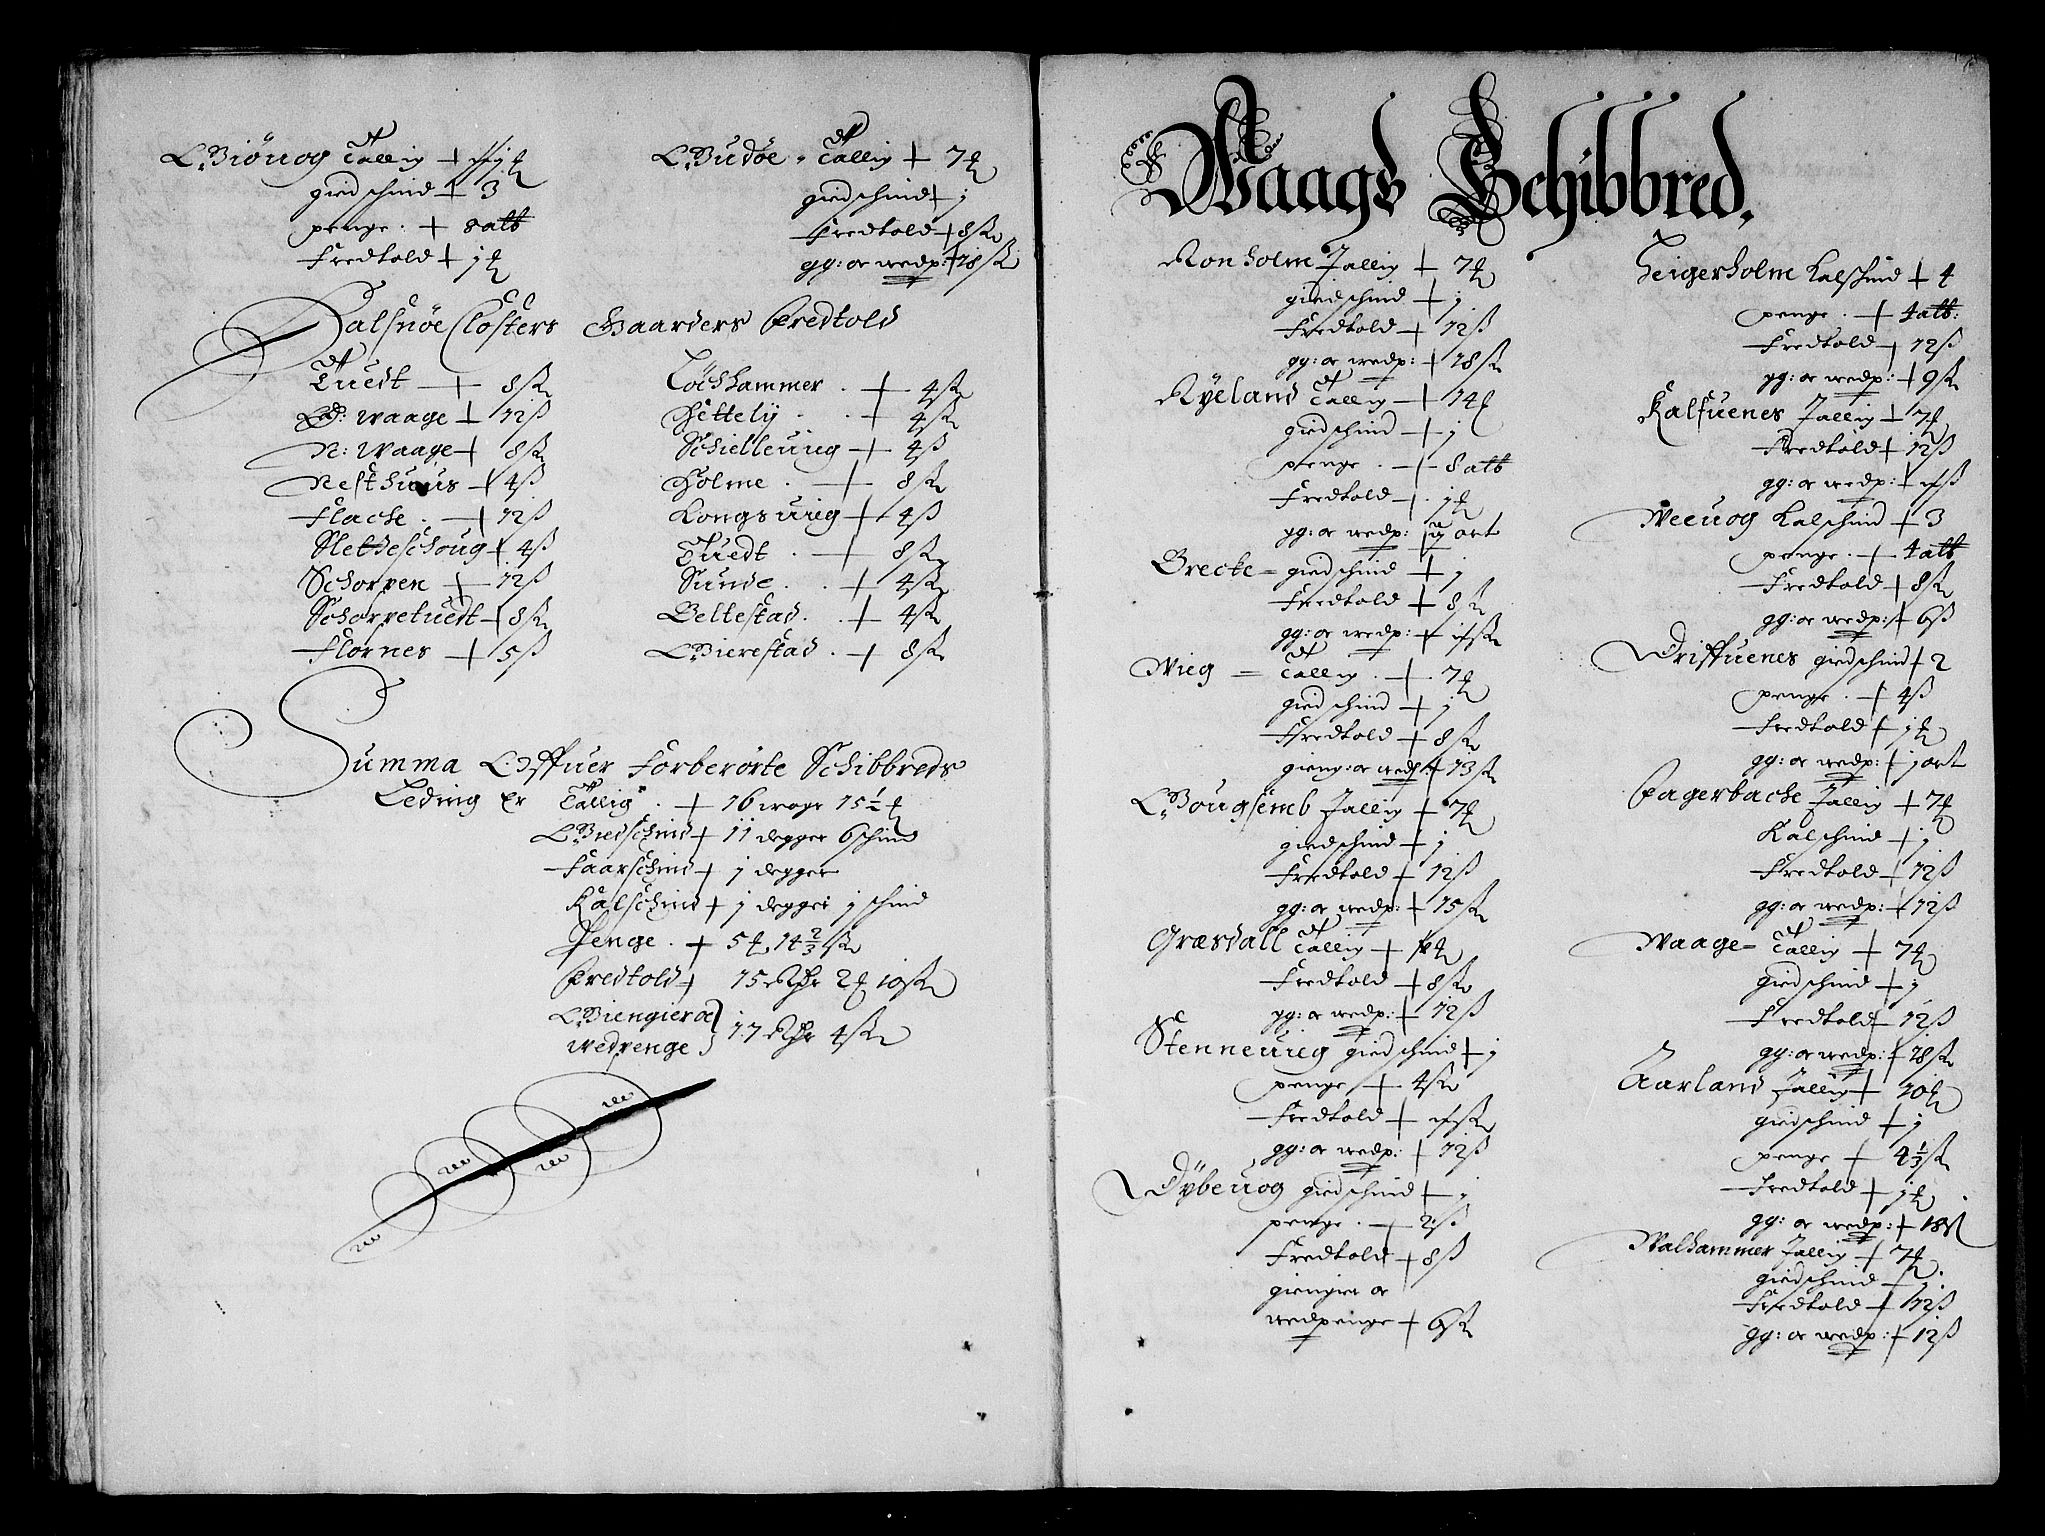 Giöuog Tallig + 
giedschind + 3
penge. + 8 alb
Fredtold + j
Gudöe. Tallig + 7
giedschind + j
Fredtold + 8 sk
gg: oc wedp: + 18 sk
Halsnöe Closters Gaarders Fredtold
Tuedt + 8 sk
Ø: waage + 12 ß
N: Waage + 8 sk
Nesthuus + 4 ß
Flache. + 12 ß
Sletteschoug + 4 ß
Schorpen + 12 ß
Schorpetuedt + 8 sk
Flornes + 5 ß
Löchhammer. + 4 sk
Hettelij. + 4 sk
Schielleuiig + 4 ß
Holme. + 8 sk
Kongsuiig + 4 ß
Tuedt. + 8 sk
Sunde. + 4 sk
Beltestad. + 4 sk
Gierestad. + 8 sk
Summa Offuer Forberörte Schibbreds
Leding Er Tallig. + 16 woge 15½
Giedschind + 11 degger 6 schind
Faarschind + j degger
Kalschind + j degger j schind
Penge. + 5, 14 2/3 sk
Fredtold + 15 Rdr 2 10 sk
Giengier oc
wedpenge } 17 Rdr 4 sk
Waags Schibbred.
Ronholm Tallig + 7
giedschind + j
Fredtold + 12 ß
gg: oc wedp: + 18 sk
Ryeland Tallig + 14
giedschind + j
penge. + 8 alb
Fredtold + j
gg: oc wedp: + ij ort
Brecke = giedschind + j
Fredtold + 8 sk
gg: oc wedp: + sk
Wieg = Tallig. + 7
giedschind + j
Fredtold + 8 sk
gieng: oc wedp + 13 sk
Gougsemb Tallig + 7
giedschind + j
Fredtold + 12 ß
gg: oc wedp: + 15 sk
Græsdall Tallig + 
Fredtold + 8 sk
gg: oc wedp: + 12 ß
Stenneuiig giedschind + j
penge + 4 sk
Fredtold + sk
gg: oc wedp: + 12 ß
Dybeuog giedschind + j
penge. + 2 ß
Fredtold + 8 ß
giengier oc
wedpenge + 6 sk
Heigerholm Kalschind + 4
penge. + 4 alb:
Fredtold + 12 ß
gg: oc wedp: + 9 sk
Kalfuenes Tallig + 7
Fredtold + 12 ß
gg: oc wedp: + ß
Weeuog Kalschind + 3
penge. + 4 alb
Fredtold + 8 sk
gg: oc wedp: + 6 ß
Driffuenes giedschind + 2
penge. + 4 ß
Fredtold + j
gg: oc wedp: + j ort
Fagerbache Tallig + 7
Kalschind + j
Fredtold + 12 ß
gg: oc wedp: + 12 ß
Waage = Tallig + 7
giedschind + j
Fredtold + 12 ß
gg: oc wedp: + 18 sk
Aarland Tallig + 10
giedschind + j
penge + 4⅓ sk
Fredtold + j
gg: oc wedp: + 18 ß
Walhammer Tallig + 7
giedschind + j.
Fredtold + 12 ß
gg: oc wedp: + 12 ß